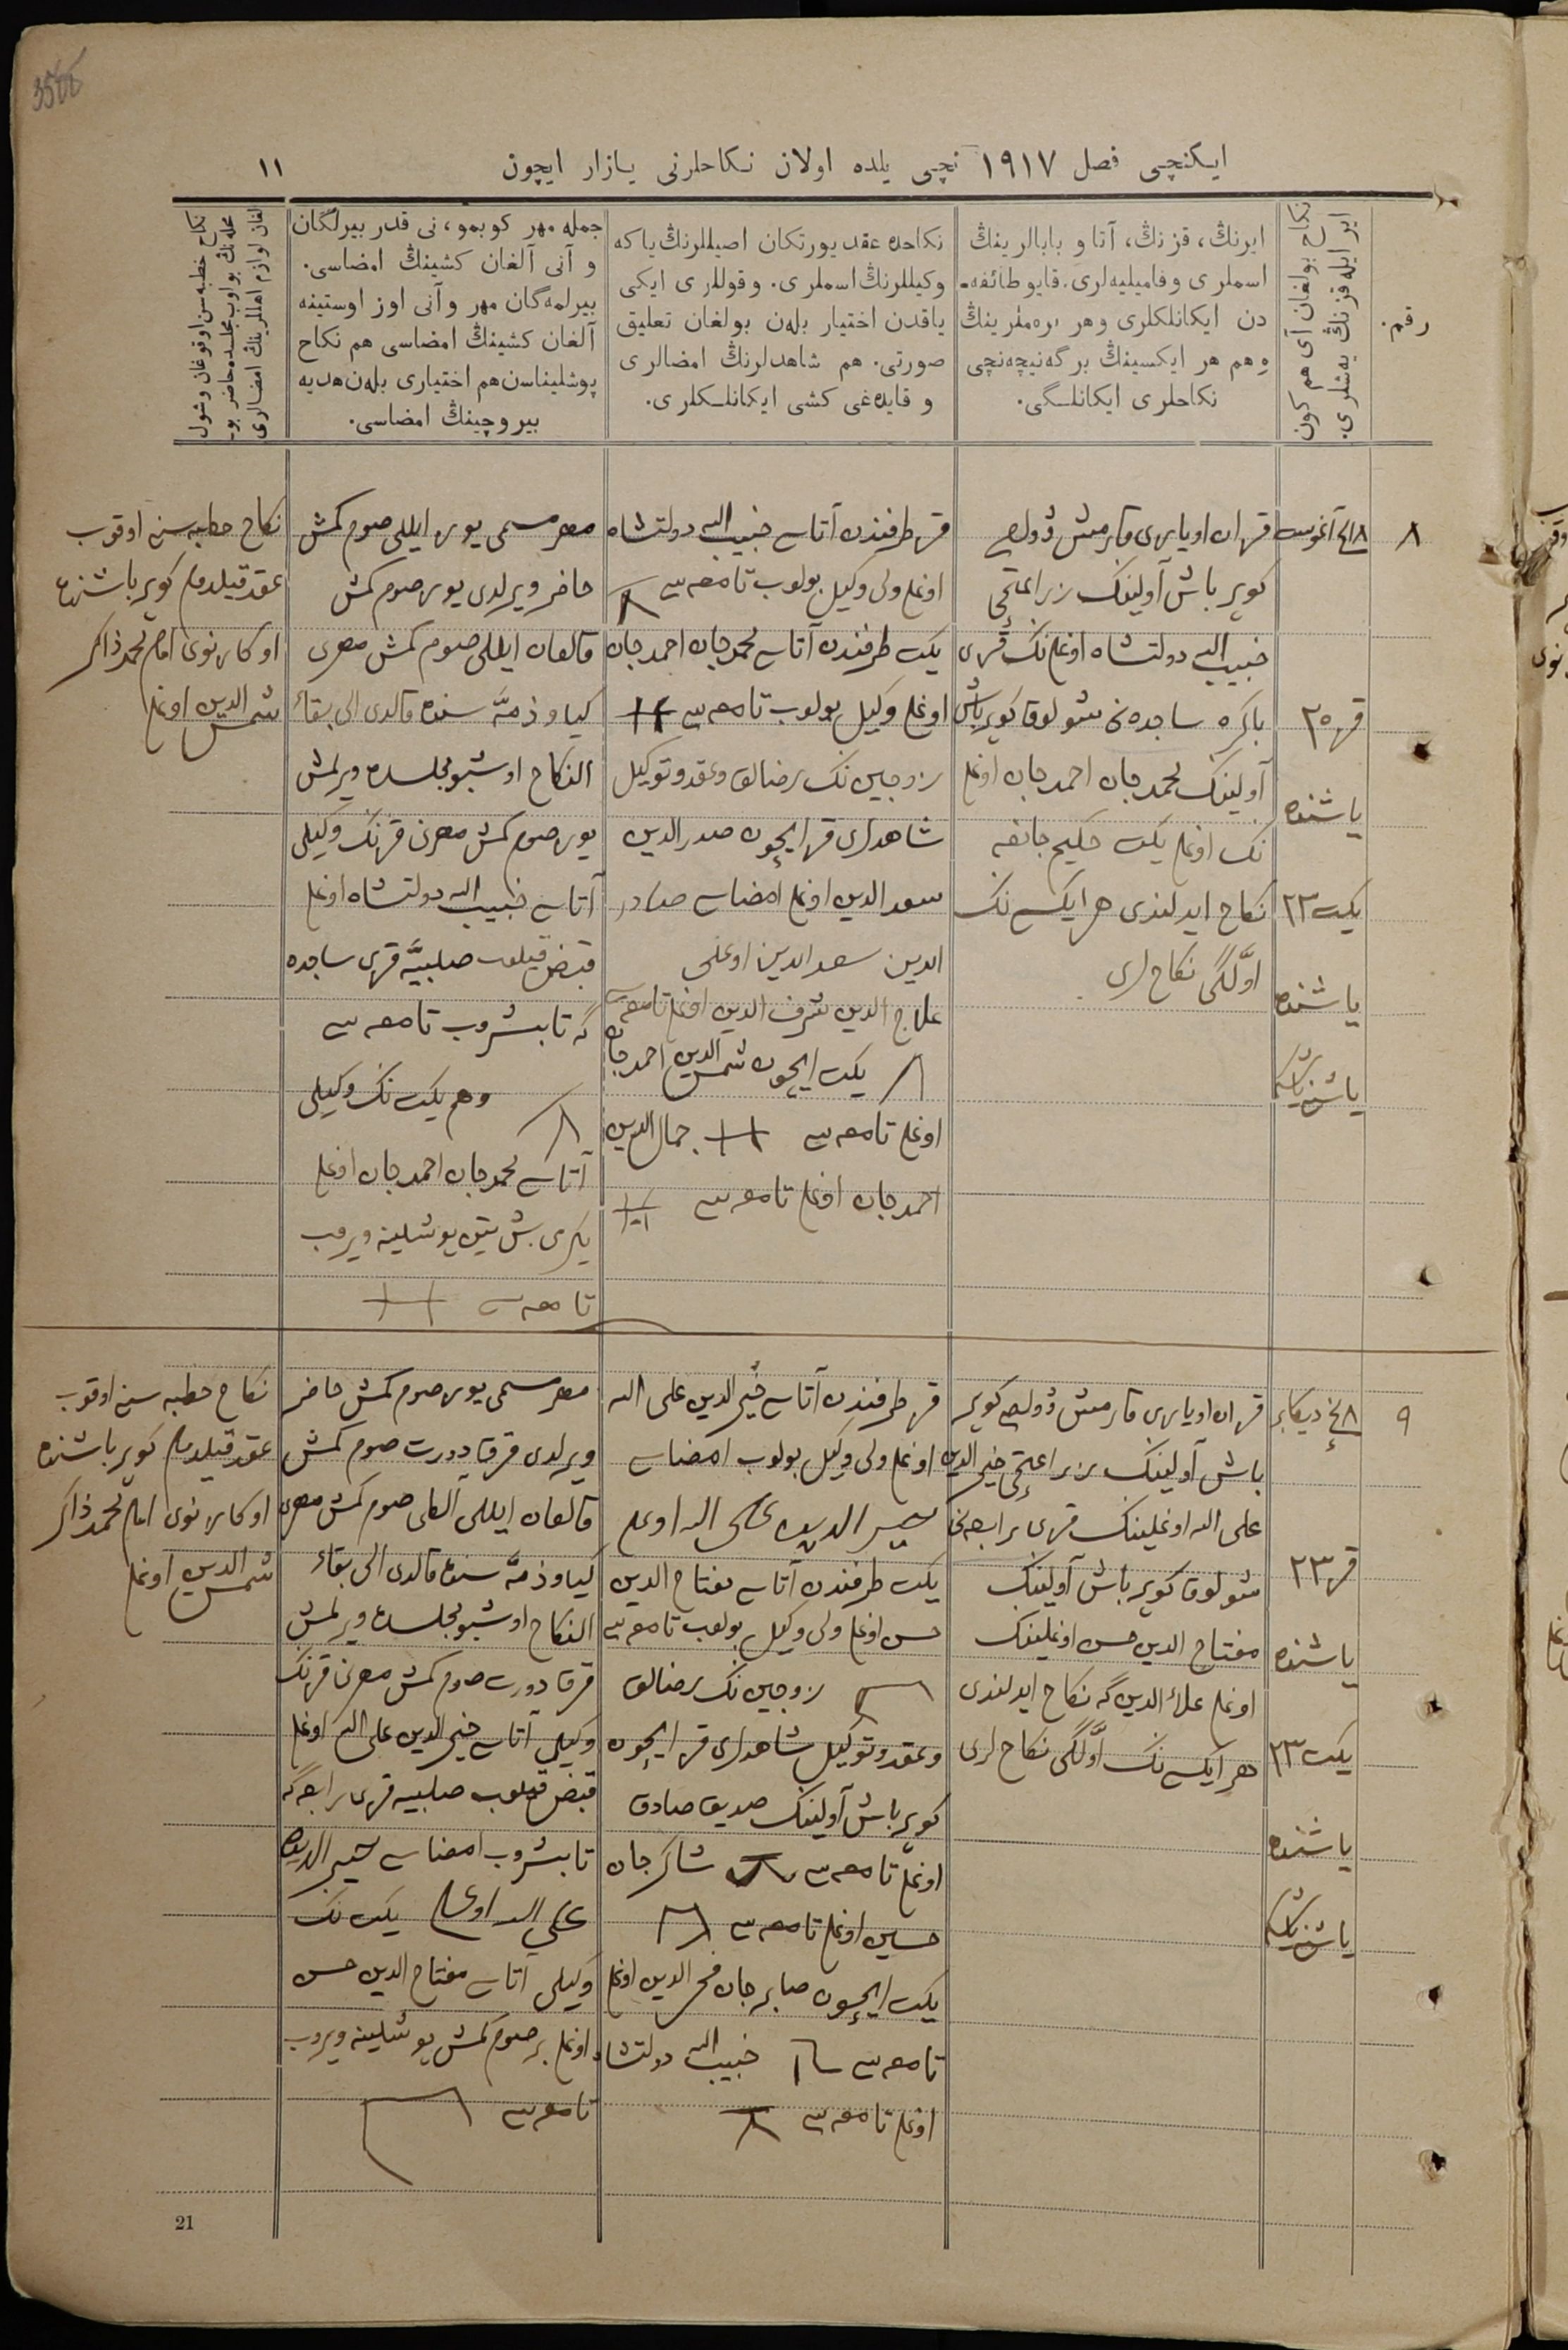 3588
ایکنچی فصل ۱۹۱۷ نچی یلده اولان نکاحلرنی یازار ایچون
۱۱
رقم.
نکاح بولغان آی هم کون
ایر ایله قزنڭ یەشلری.
ایرنڭ، قزنڭ، آتا و بابالرینڭ
اسملری وفامیلیه‌لری. قایو طائفه‌ـ
دن ایکانلکلری وهر
وهم هر ایکسینڭ برگه‌نیچه‌نچی
نکاحلری ایکانلـگی.
نکاحده عقد یورتکان اصیللرنڭ یاکه
وکیللرنڭ اسملری. وقوللری ایکی
یاقدن اختیار بله‌ن بولغان تعلیق
صورتی. هم شاهدلرنڭ امضالری
و قایده‌غی کشی ایکانلـکلری.
جمله مهر کوبمو، نی قدر بیرلگان
و آنی آلغان کشینڭ امضاسی.
بیرلمه‌گان مهر وآنی اوز اوستینه
آلغان کشینڭ امضاسی هم نکاح
پوشلیناسن هم اختیاری بله‌ن هدیه
بیروچینڭ امضاسی.
نکاح خطبه‌سن اوقوغان وشول
محله‌نڭ بولوب مجلسده حاضر بو‌ـ
لغان لوازم اهللرینڭ امضالری
۸
۱۸ نچی آغوست
قز ۲۵
یاشنده
یکت ۲۳
یاشنده
قزان اویازی قارمش وولصی
کویر باش آولینک
حبیب الله دولتشاه اوغلی نک قزی
باکره ساجده نی شولوق کویر باش
آولینک محمدجان احمدجان اوغلی
نک اوغلی یکت حکیم جانغه
نکاح ایدلندی هر ایکسی نک
اوّلگی نکاح لری
قز طرفندن آتاسی حبیب الله دولتشاه
اوغلی ولی وکیل بولوب تامغەسی
یکت طرفندن آتاسی محمدجان احمدجان
اوغلی وکیل بولوب تامغەسی
زوجین نک رضالق وعقد وتوکیل
شاهدلری قز ایچون صدرالدین
سعدالدین اوغلی امضاسی صدر
الدین سعدالدین اوغلی
علاج الدین شرف الدین اوغلی تامغەسی
یکت ایچون شمس الدین احمدجان
اوغلی تامغەسی جمال الدین
احمدجان اوغلی تامغەسی
مهر مسمی یوز ایللی صوم کمش
حاضر ویرلدی یوز صوم کمش
قالغان ایللی صوم کمش مهری
کیاو ذمّه سنده قالدی الی بقاء
النکاح اوشبو مجلسده ویرلمش
یوز صوم کمش مهرنی قزنک وکیلی
آتاسی حبیب الله دولتشاه اوغلی
قبض قیلوب صلبیّه قزی ساجده
گه تابشروب تامغەسی
وهم یکت نک وکیلی
آتاسی محمدجان احمدجان اوغلی
یکرمی بش تین پوشلینه ویروب
تامغەسی
نکاح خطبه سنی اوقوب
عقد قیلدم کویر باشنده
اوکازنوی امام محمدذاکر
شمس الدین اوغلی
۹
۸ نچی دیکابر
قز ۲۳
یاشنده
یکت ۲۳
یاشنده
قزان اویازی قارمش وولصی کویر
باش آولینک خیرالدین
علی الله اوغلینک قزی رابعه نی
شولوق کویر باش آولینک
مفتاح الدین حسن اوغلینک
اوغلی علاء الدین گه نکاح ایدلندی
هر ایکسی نک اوّلگی نکاح لری
قز طرفندن آتاسی خیرالدین علی الله
اوغلی ولی وکیل بولوب امضاسی
خیر الدین علی الله اوغلی
یکت طرفندن آتاسی مفتاح الدین
حسن اوغلی ولی وکیل بولوب تامغەسی
زوجین نک رضالق
وعقد وتوکیل شاهدلری قز ایچون
کویر باش آولینک صدیق صادق
اوغلی تامغەسی شاکرجان
حسین اوغلی تامغەسی
یکت ایچون صابرجان فخرالدین اوغلی
تامغەسی حبیب الله دولتشاه
اوغلی تامغەسی
مهر مسمی یوز صوم کمش حاضر
ویرلدی قرق دورت صوم کمش
قالغان ایللی آلطی صوم کمش مهری
کیاو ذمّه سنده قالدی الی بقاء
النکاح اوشبو مجلسده ویرلمش
قرق دورت صوم کمش مهرنی قزنک
وکیلی آتاسی خیرالدین علی الله اوغلی
قبض قیلوب صلبیه قزی رابعه گه
تابشروب امضاسی خیر الدین
علی الله اوغلی یکت نک
وکیلی آتاسی مفتاح الدین حسن
اوغلی بر صوم کمش پوشلینه ویروب
تامغەسی
نکاح خطبه سنی اوقوب
عقد قیلدم کویر باشنده
اوکازنوی امام محمدذاکر
شمس الدین اوغلی
21